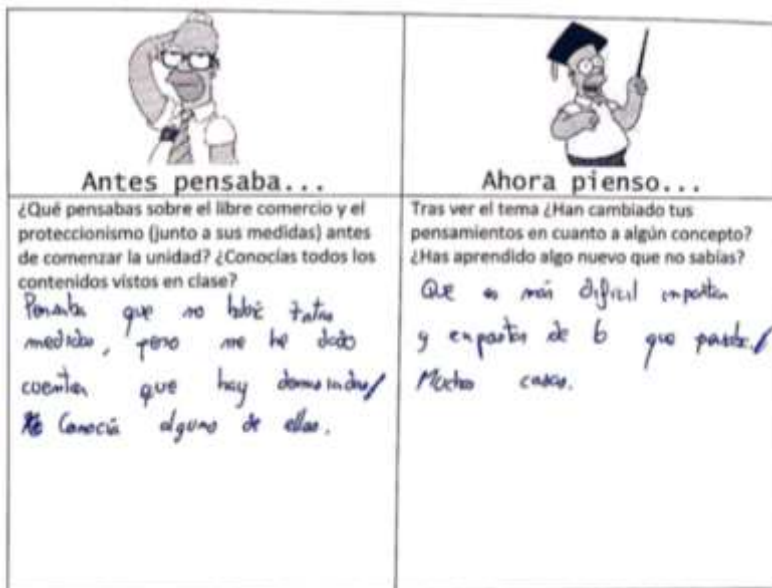 Antes pensaba...
¿Qué pensabas sobre el libre comercio y el
proteccionismo (junto a sus medidas) antes
de comenzar la unidad? ¿Conocías todos los
contenidos vistos en clase?
Pensaba que no había tantas
medidas, pero me he dado
cuenta que hay demasiadas/
Conocía alguno de ellos.
Ahora pienso...
Tras ver el tema ¿Han cambiado tus
pensamientos en cuanto a algún concepto?
¿Has aprendido algo nuevo que no sabías?
Que es más difícil importar
y exportar de lo que pensaba/
Muchas cosas.